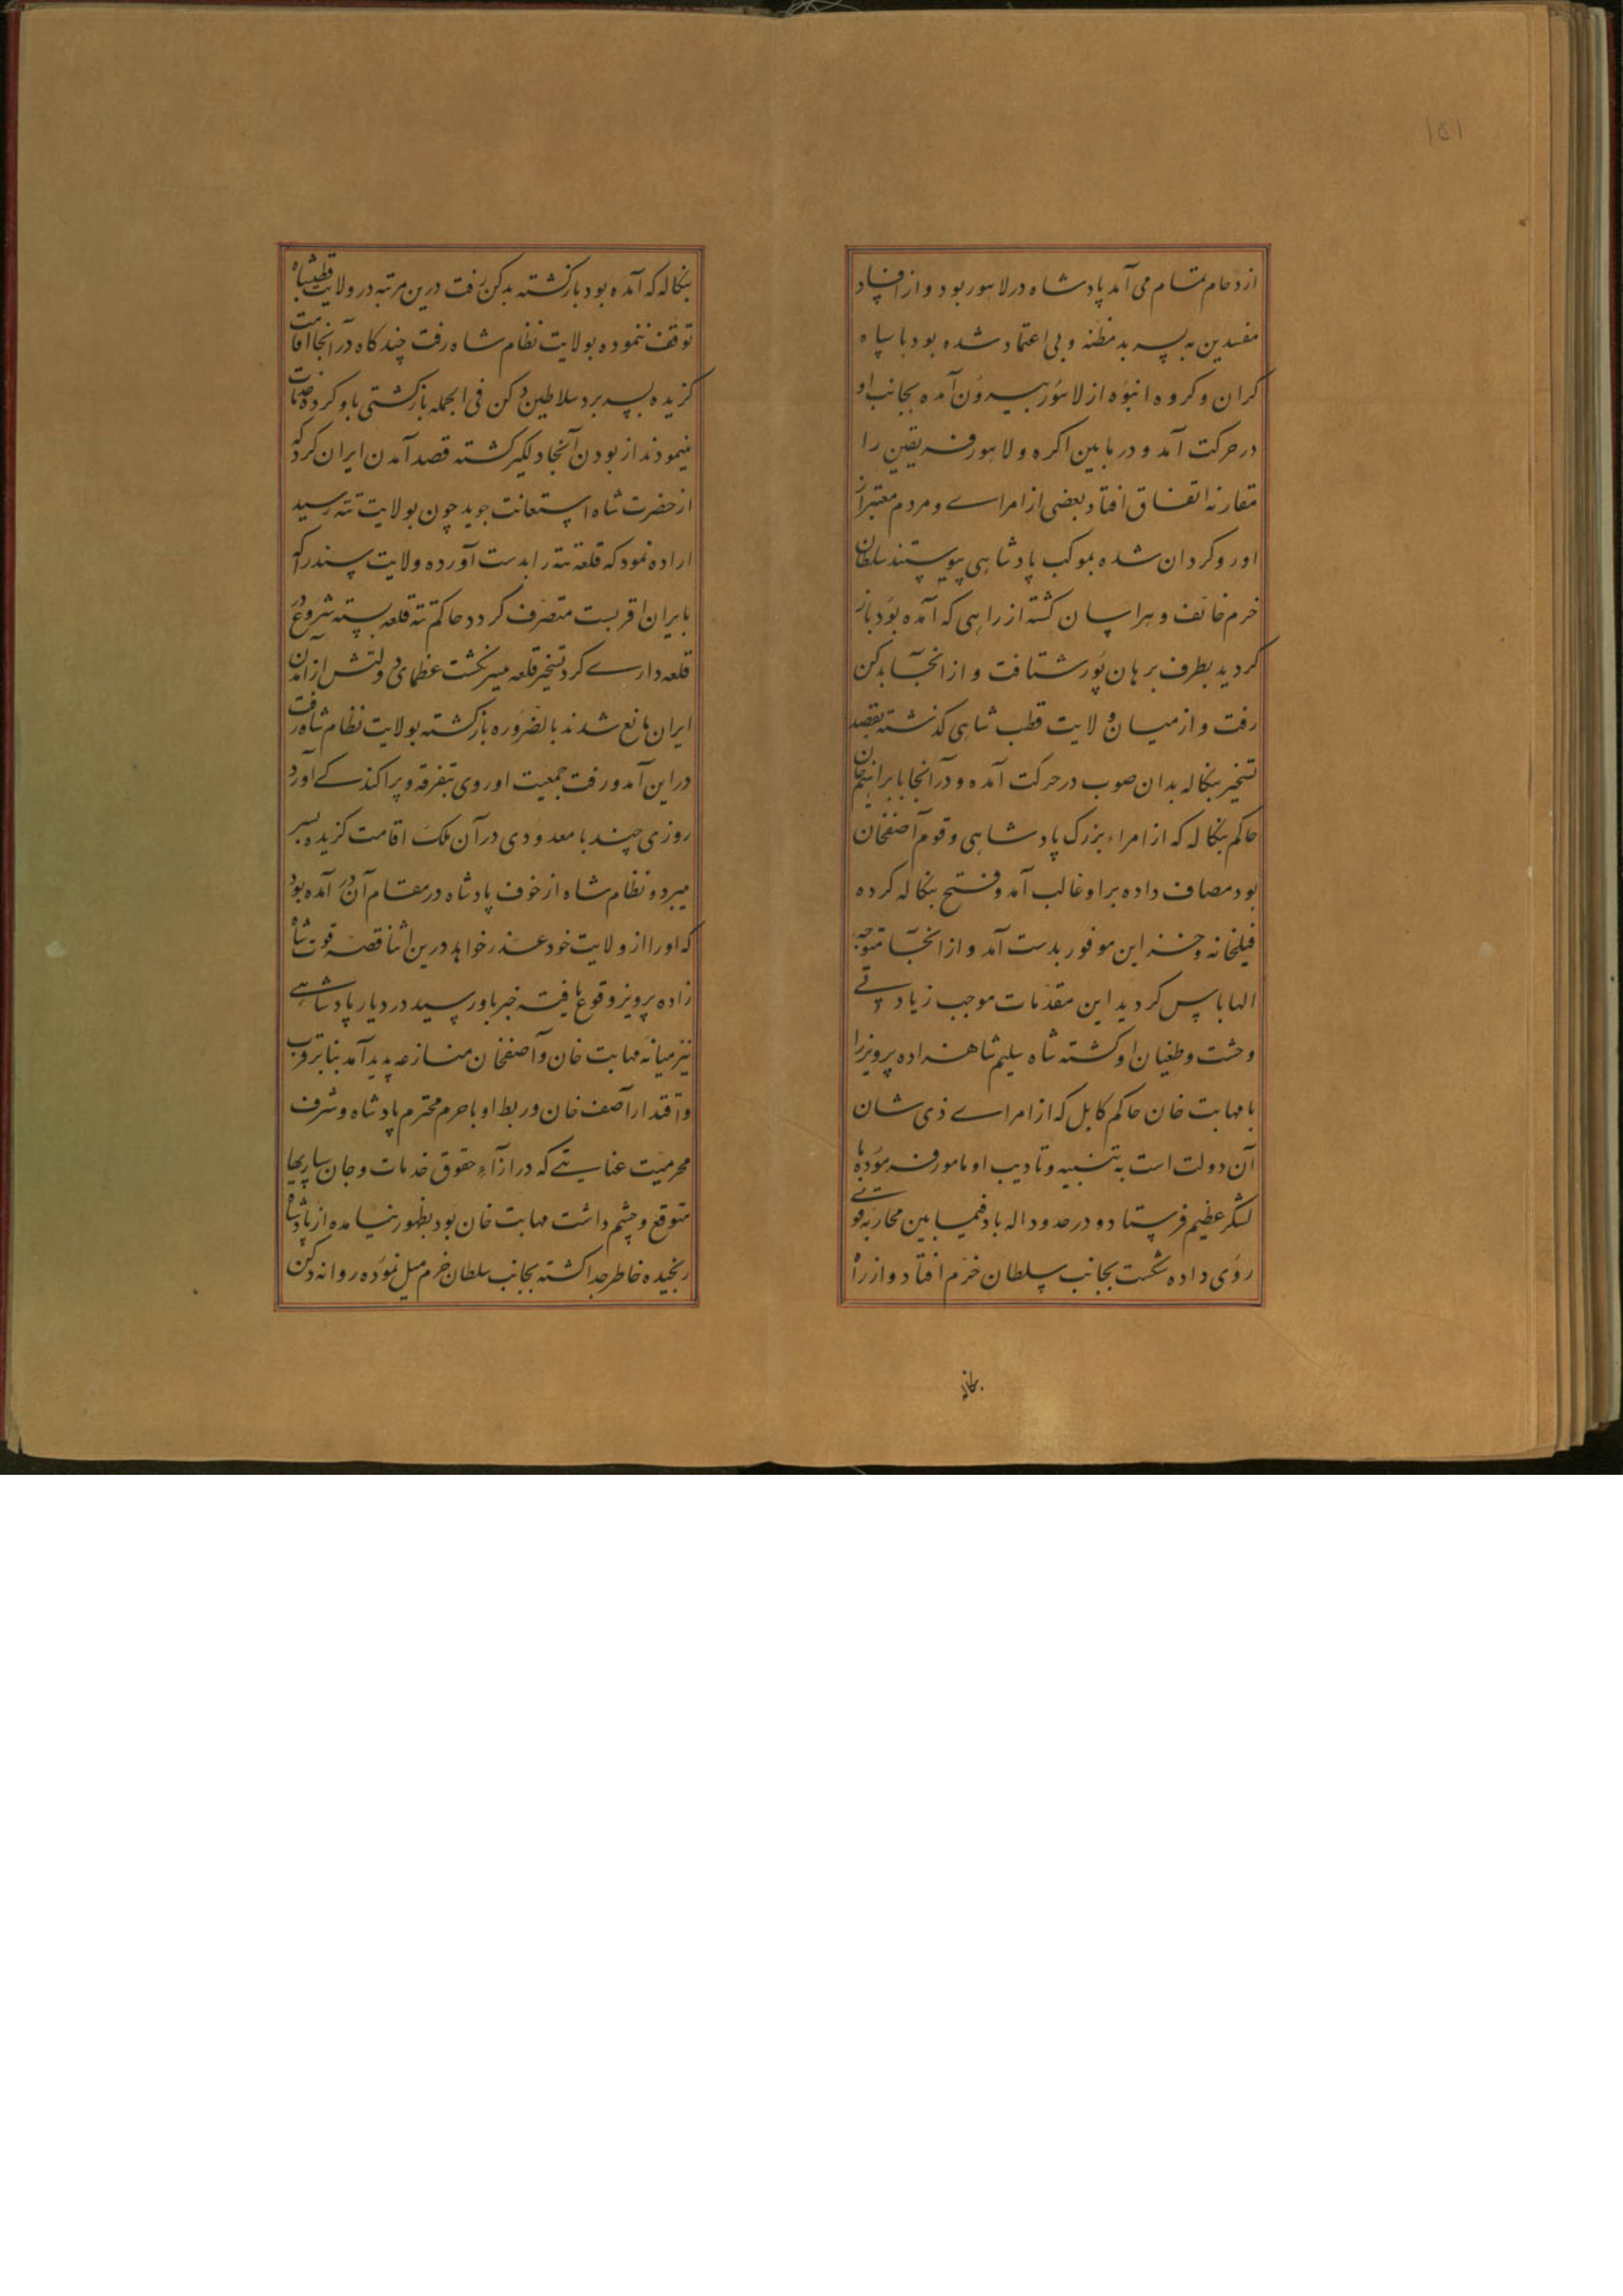 ۱۵۱
ازدحام تمام می آمد پادشاه در لاهور بود و از افساد
مفسدین به پسر بدمظنه و بی اعتماد شده بود با سپاه
کران و کروه انبوه از لاهور بیرون آمده بجانب او
در حرکت آمد و در مابین اکره و لاهور فریقین را
مقارنه اتفاق افتاد بعضی از امرای و مردم معتبر از
او روکردان شده بموکب پادشاهی پیوستند سلطان
خرم خائف و هراسان کشته از راهی که آمده بود باز
کردید بطرف برهان پور شتافت و از آنجا بدکن
رفت و از میان ولایت قطب شاهی کذشته بقصد
تسخیر بنکاله بدان صوب در حرکت آمده و در آنجا با براهیم خان
حاکم بنکاله که از امراء بزرک پادشاهی و قوم آصفخان
بود مصاف داده بر او غالب آمد و فتح بنکاله کرده
فیلخانه و خزاین موفور بدست آمد و از آنجا متوجه
الهاباس کردید این مقدمات موجب زیادتی
وحشت و طغیان او کشته شاه سلیم شاهزاده پرویز را
با مهابت خان حاکم کابل که از امرای ذی شان
آن دولت است به تنبیه و تادیب او مامور فرموده با
لشکر عظیم فرستاد و در حدود اله باد فیمابین محاربه قوی
روی داده شکست بجانب سلطان خرم افتاد و از راه
بنکاله
بنکاله که آمده بود بازکشته بدکن رفت درین مرتبه در ولایت قطبشاه
توقف ننموده بولایت نظام شاه رفت چند کاه در آنجا اقامت
کزیده بسر برد سلاطین دکن فی الجمله بازکشتی باو کرده خدمات
مینمودند از بودن آنجا دلکیر کشته قصد آمدن ایران کرد که
از حضرت شاه استعانت جوید چون بولایت تته رسید
اراده نمود که قلعه تته را بدست آورده ولایت سند را که
بایران اقربست متصرف کردد حاکم تته قلعه بسته شروع در
قلعه داری کرد تسخیر قلعه میسر نکشت عظمای دولتش از آمدن
ایران مانع شدند بالضروره بازکشته بولایت نظام شاه رفت
در این آمد و رفت جمعیت او روی بتفرقه و پراکندکی آورد
روزی چند با معدودی در آن ملک اقامت کزیده بسر
میبرد و نظام شاه از خوف پادشاه در مقام آن در آمده بود
که او را از ولایت خود عذر خواهد درین اثنا قصه فوت شاه
زاده پرویز وقوع یافته خبر باو رسید در دیار پادشاهی
نیز میانه مهابت خان و آصفخان منازعه پدید آمد بنا بر قرب
و اقتدار آصف خان و ربط او با حرم محترم پادشاه و شرف
محرمیت عنایتی که در ازاء حقوق خدمات و جان سپاریها
متوقع و چشم داشت مهابت خان بود بظهور نیامده از پادشاه
رنجیده خاطر جدا کشته بجانب سلطان خرم میل نموده روانه دکن